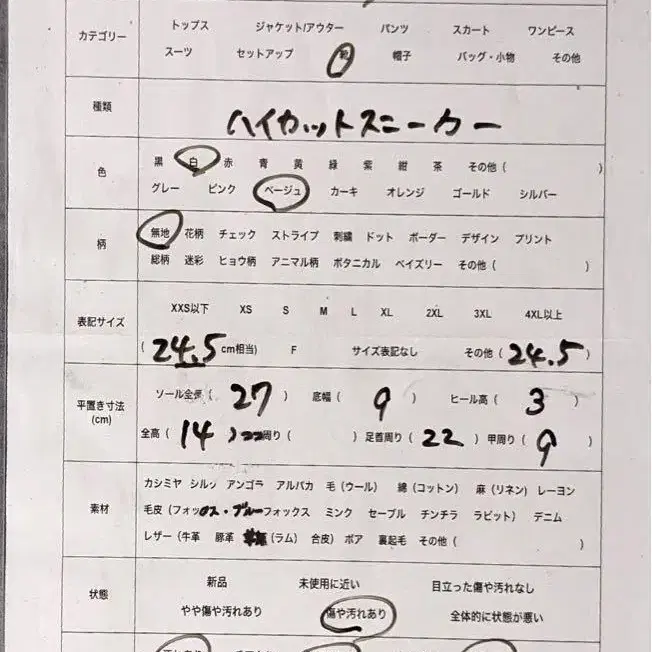 カテゴリー
トップス ジャケット/アウター パンツ スカート ワンピース
スーツ セットアップ 靴 帽子 バッグ・小物 その他
種類
ハイカットスニーカー
色
黒 白 赤 青 黄 緑 紫 紺 茶 その他 ( )
グレー ピンク ベージュ カーキ オレンジ ゴールド シルバー
柄
無地 花柄 チェック ストライプ 刺繍 ドット ボーダー デザイン プリント
総柄 迷彩 ヒョウ柄 アニマル柄 ボタニカル ペイズリー その他 ( )
表記サイズ
XXS以下 XS S M L XL 2XL 3XL 4XL以上
( 24.5 cm相当) F サイズ表記なし その他 ( 24.5 )
平置き寸法
(cm)
ソール全長 ( 27 ) 底幅 ( 9 ) ヒール高 ( 3 )
全高 ( 14 ) 周り ( ) 足首周り ( 22 ) 甲周り ( 9 )
素材
カシミヤ シルク アンゴラ アルパカ 毛 (ウール) 綿 (コットン) 麻 (リネン) レーヨン
毛皮 (フォックス・ブルーフォックス ミンク セーブル チンチラ ラビット) デニム
レザー (牛革 豚革 (ラム) 合皮) ボア 裏起毛 その他 ( )
状態
新品 未使用に近い 目立った傷や汚れなし
やや傷や汚れあり 傷や汚れあり 全体的に状態が悪い